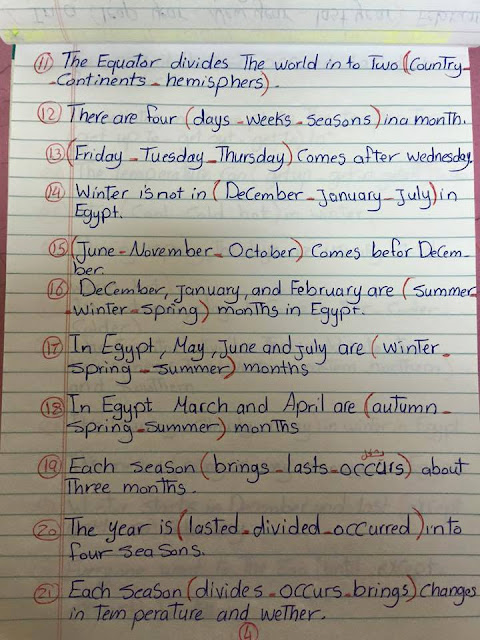 11 The Equator divides The world in to Two (Country-
-Continents - hemisphers).
12 There are four (days - weeks - seasons) in a month.
13 (Friday - Tuesday - Thursday) Comes after wednesday
14 Winter is not in (December - January - July) in
Egypt.
15 (June - November - October) Comes befor Decem-
ber.
16 December, January, and February are (summer-
-winter - spring) months in Egypt.
17 In Egypt, May, June and July are (winter-
spring - summer) months
18 In Egypt March and April are (autumn-
spring - summer) months
19 Each season (brings - lasts - occurs) about
Three months.
20 The year is (lasted - divided - occurred) into
four sea sons.
21 Each season (divides - occurs - brings) changes
in tem perature and wether.
4